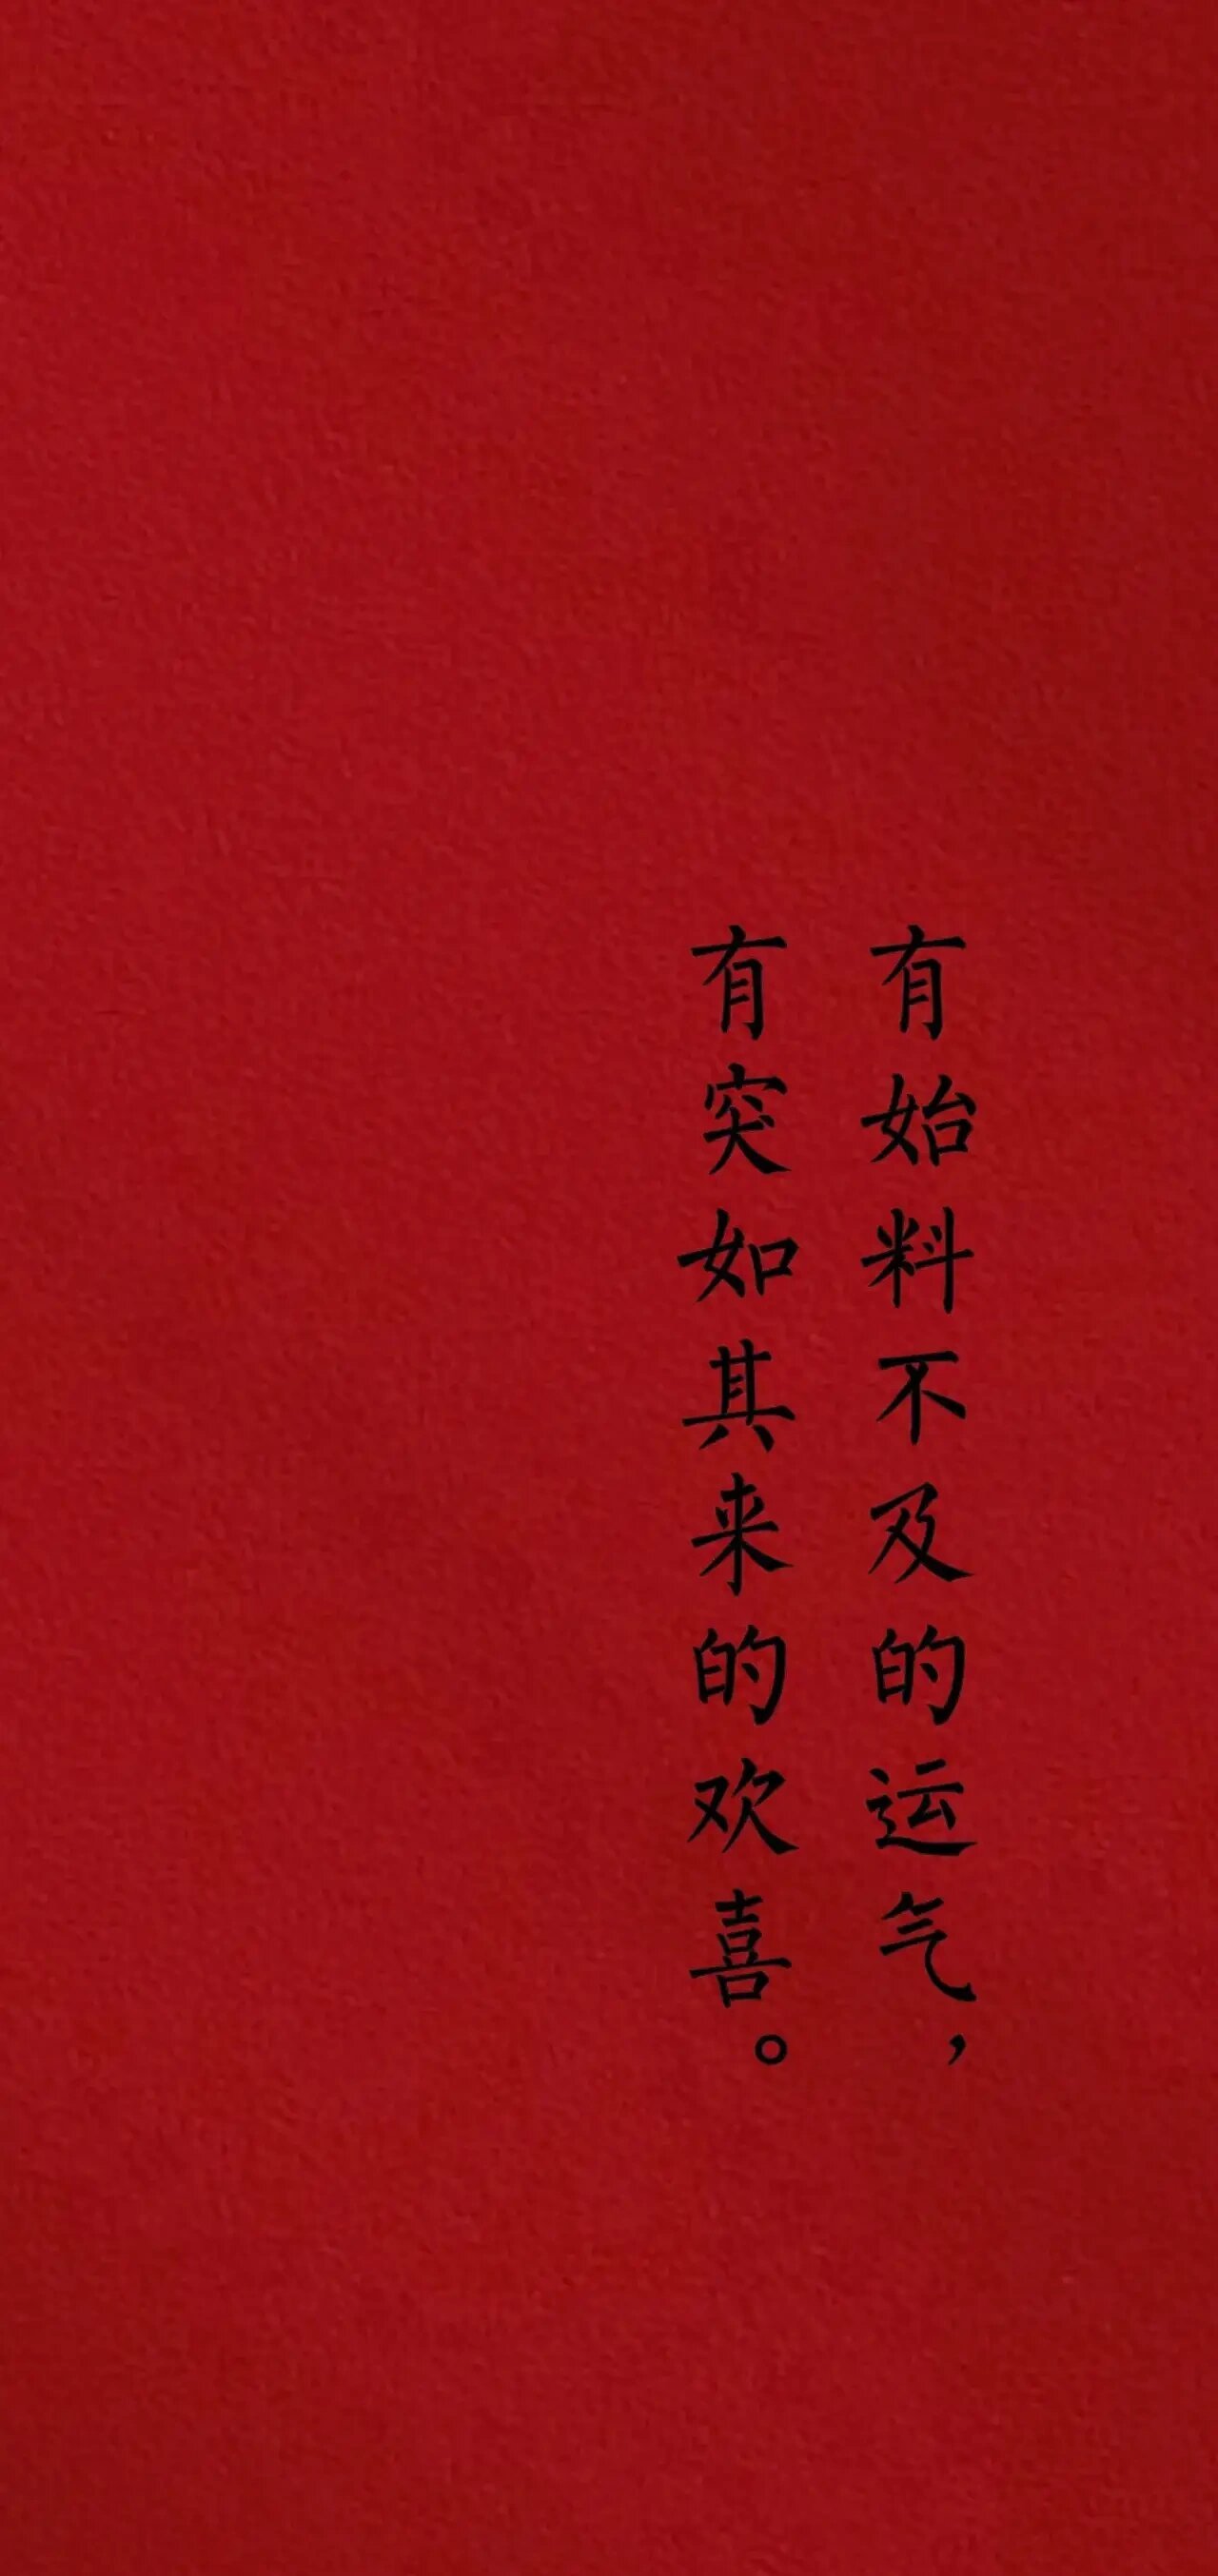 有始料不及的运气，
有突如其来的欢喜。